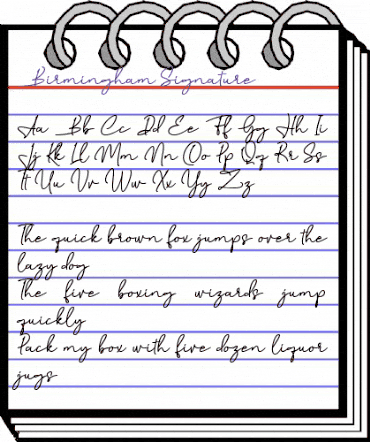 Birmingham Signature
Aa Bb Cc Dd Ee Ff Gg Hh Ii
Jj Kk Ll Mm Nn Oo Pp Qq Rr Ss
Tt Uu Vv Ww Xx Yy Zz
The quick brown fox jumps over the
lazy dog
The five boxing wizards jump
quickly
Pack my box with five dozen liquor
jugs